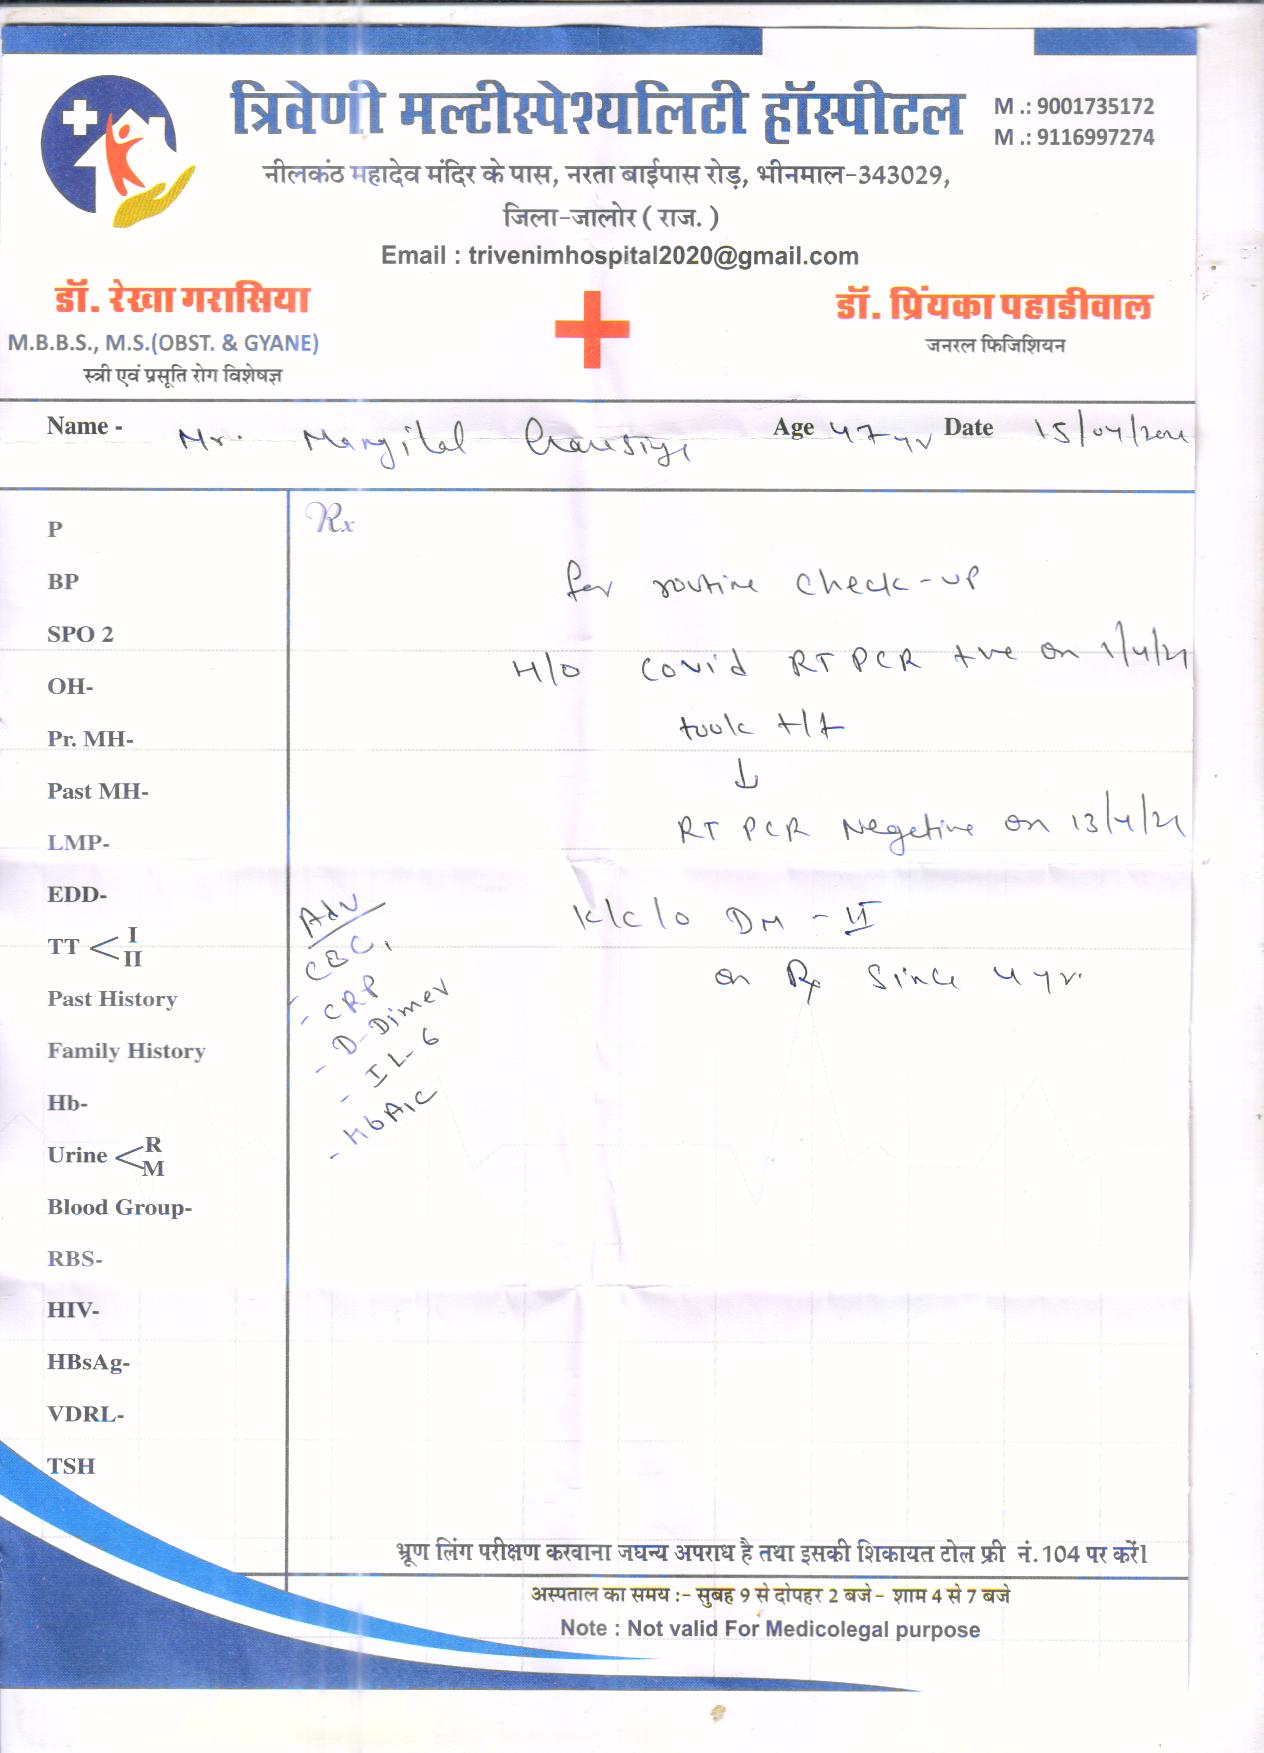 त्रिवेणी मल्टीस्पेश्यलिटी हॉस्पीटल
M .: 9001735172
M .: 9116997274
नीलकंठ महादेव मंदिर के पास, नरता बाईपास रोड़, भीनमाल-343029,
जिला-जालोर ( राज. )
Email : trivenimhospital2020@gmail.com
डॉ. रेखा गरासिया
M.B.B.S., M.S.(OBST. & GYANE)
स्त्री एवं प्रसूति रोग विशेषज्ञ
डॉ. प्रिंयका पहाडीवाल
जनरल फिजिशियन
Name - Mr. Age 47 yr Date 15/04/2021
Rx
for routine check-up
H/o Covid RT PCR +ve on 1/4/21
took t/t
↓
RT PCR Negetive on 13/4/21
K/c/o DM - II
on Rx Since 4 yr.
Adv
CBC,
- CRP
- D-Dimer
- IL-6
- HbA1C
P
BP
SPO 2
OH-
Pr. MH-
Past MH-
LMP-
EDD-
TT < I
II
Past History
Family History
Hb-
Urine < R
M
Blood Group-
RBS-
HIV-
HBsAg-
VDRL-
TSH
भ्रूण लिंग परीक्षण करवाना जघन्य अपराध है तथा इसकी शिकायत टोल फ्री नं. 104 पर करें।
अस्पताल का समय :- सुबह 9 से दोपहर 2 बजे - शाम 4 से 7 बजे
Note : Not valid For Medicolegal purpose